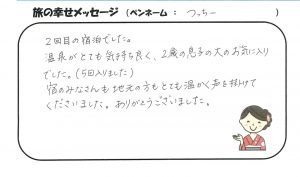 旅の幸せメッセージ（ペンネーム：つっちー）
2回目の宿泊でした。
温泉がとても気持ち良く、2歳の息子の大のお気に入り
でした。（5回入りました）
宿のみなさんも地元の方もとても温かく声を掛けて
くださいました。ありがとうございました。